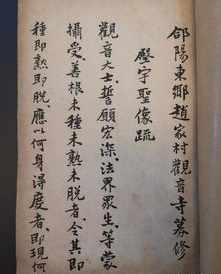 郃陽東鄉趙家村觀音寺募修
殿宇聖像疏
觀音大士誓願宏深法界眾生等蒙
攝受善根未種未熟未脫者令其即
種即熟即脫應以何身得度者即現何